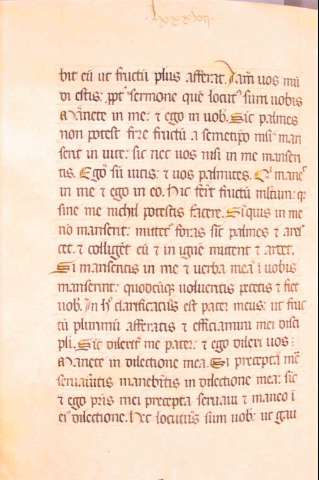 bit eū ut fructū plus afferat. Jam uos mū
di estis: ꝓpt̄ sermonē quē locut᷒ sum uobis
Manete in me: ⁊ ego in uob̄. Sic palmes
non potest fr̄e fructū a semetip̄o nisi man
serit in uite: sic nec uos nisi in me manseri
tis. Ego sū uitis: ⁊ uos palmites. Qͥ manet
in me ⁊ ego in eo. hic fert fructū multum: qͥ
sine me nichil potestis facere. Siquis in me
nō manserit: mittet᷑ foras sic̄ palmes ⁊ ares
cet. ⁊ colligēt eū ⁊ in ignē mittent ⁊ ardet.
Si manseritis in me ⁊ uerba mea ī uobis
manserint: quodcūqꝫ uolueritis petetis ⁊ fiet
uob̄. In h̄ clarificatus est pater meus: ut fruc
tū plurimū afferatis ⁊ efficiamini mei disci
puli. Sic dilexit me pater: ⁊ ego dilexi uos:
Manete in dilectione mea. Si precepta mē
seruau͛itis manebitis in dilectione mea: sic
⁊ ego pr̄is mei precepta seruaui ⁊ maneo ī
ei᷒ dilectione. Hec locutus sum uob̄: ut gau